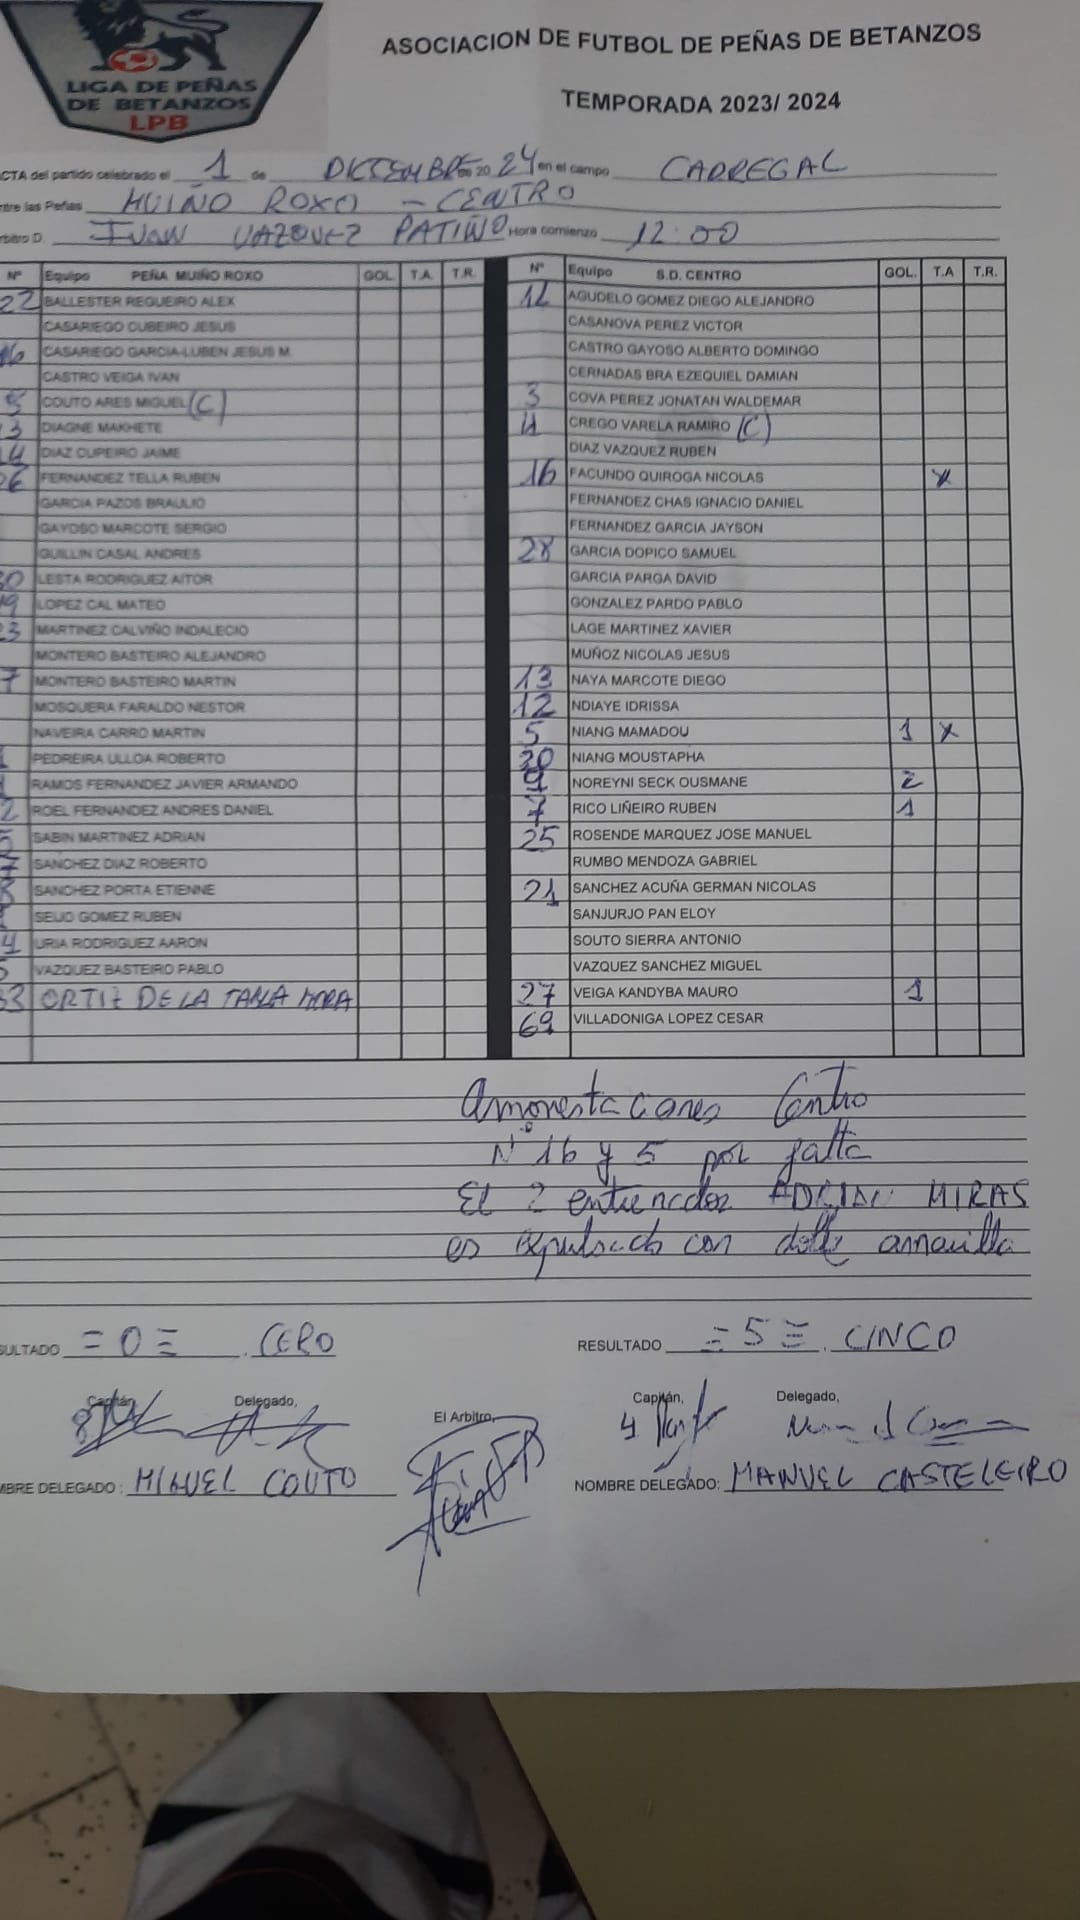 LIGA DE PEÑAS
DE BETANZOS
LPB
ASOCIACION DE FUTBOL DE PEÑAS DE BETANZOS
TEMPORADA 2023/ 2024
CTA del partido celebrado el 1 de DICIEMBRE de 20 24 en el campo CARREGAL
ntre las Peñas MUIÑO ROXO - CENTRO
rbitro D. IVAN VAZQUEZ PATIÑO Hora comienzo 12:00
Nº Equipo PEÑA MUIÑO ROXO GOL T.A. T.R. Nº Equipo S.D. CENTRO GOL. T.A T.R.
22 BALLESTER REGUEIRO ALEX AGUDELO GOMEZ DIEGO ALEJANDRO
CASARIEGO CUBEIRO JESUS CASANOVA PEREZ VICTOR
16 CASARIEGO GARCIA-LUBEN JESUS M. CASTRO GAYOSO ALBERTO DOMINGO
CASTRO VEIGA IVAN CERNADAS BRA EZEQUIEL DAMIAN
COUTO ARES MIGUEL (C) 3 COVA PEREZ JONATAN WALDEMAR
3 DIAGNE MAKHETE CREGO VARELA RAMIRO (C)
14 DIAZ CUPEIRO JAIME DIAZ VAZQUEZ RUBEN
26 FERNANDEZ TELLA RUBEN 16 FACUNDO QUIROGA NICOLAS X
GARCIA PAZOS BRAULIO FERNANDEZ CHAS IGNACIO DANIEL
GAYOSO MARCOTE SERGIO FERNANDEZ GARCIA JAYSON
GUILLIN CASAL ANDRES 28 GARCIA DOPICO SAMUEL
LESTA RODRIGUEZ AITOR GARCIA PARGA DAVID
LOPEZ CAL MATEO GONZALEZ PARDO PABLO
23 MARTINEZ CALVIÑO INDALECIO LAGE MARTINEZ XAVIER
MONTERO BASTEIRO ALEJANDRO MUÑOZ NICOLAS JESUS
7 MONTERO BASTEIRO MARTIN 13 NAYA MARCOTE DIEGO
MOSQUERA FARALDO NESTOR 12 NDIAYE IDRISSA
NAVEIRA CARRO MARTIN 5 NIANG MAMADOU 1 X
PEDREIRA ULLOA ROBERTO NIANG MOUSTAPHA
RAMOS FERNANDEZ JAVIER ARMANDO 9 NOREYNI SECK OUSMANE 2
2 ROEL FERNANDEZ ANDRES DANIEL 7 RICO LIÑEIRO RUBEN 1
SABIN MARTINEZ ADRIAN 25 ROSENDE MARQUEZ JOSE MANUEL
SANCHEZ DIAZ ROBERTO RUMBO MENDOZA GABRIEL
SANCHEZ PORTA ETIENNE 21 SANCHEZ ACUÑA GERMAN NICOLAS
SEIJO GOMEZ RUBEN SANJURJO PAN ELOY
4 URIA RODRIGUEZ AARON SOUTO SIERRA ANTONIO
VAZQUEZ BASTEIRO PABLO VAZQUEZ SANCHEZ MIGUEL
33 ORTIZ DE LA TABLA MORA 27 VEIGA KANDYBA MAURO 1
69 VILLADONIGA LOPEZ CESAR
Amonestaciones Centro
Nº 16 y 5 por falta
El 2 entrenador ADRIAN MIRAS
es expulsado con doble amarilla
SULTADO = 0 = CERO RESULTADO = 5 = CINCO
Capitán, Delegado, El Arbitro, Capitán, Delegado,
MBRE DELEGADO : MIGUEL COUTO NOMBRE DELEGADO: MANUEL CASTELEIRO